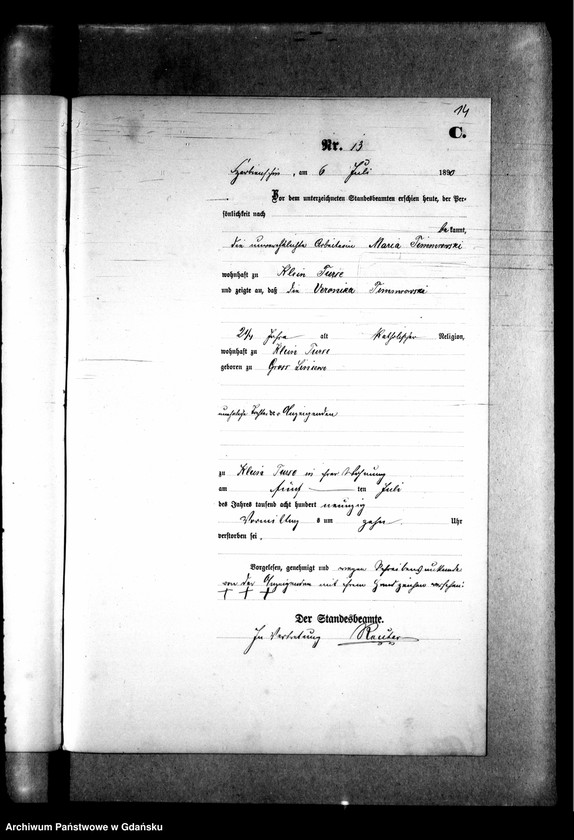 14
C.
Nr. 13
, am 6 Juli 1890
Vor dem unterzeichneten Standesbeamten erschien heute, der Per-
sönlichkeit nach
bekannt,
die unverehelichte Arbeiterin Maria
wohnhaft zu Klein Turse
und zeigte an, daß die Veronika
2¼ Jahre alt katholischer Religion,
wohnhaft zu Klein Turse
geboren zu Gross Liniewo
uneheliche Tochter der Anzeigenden
zu Klein Turse in ihrer Wohnung
am fünf ten Juli
des Jahres tausend acht hundert neunzig
Vormittags um zehn Uhr
verstorben sei.
Vorgelesen, genehmigt und wegen Schreibensunkunde
von der Anzeigenden mit ihrem Handzeichen versehen
+ + +
Der Standesbeamte.
In Vertretung Reuter
Archiwum Państwowe w Gdańsku